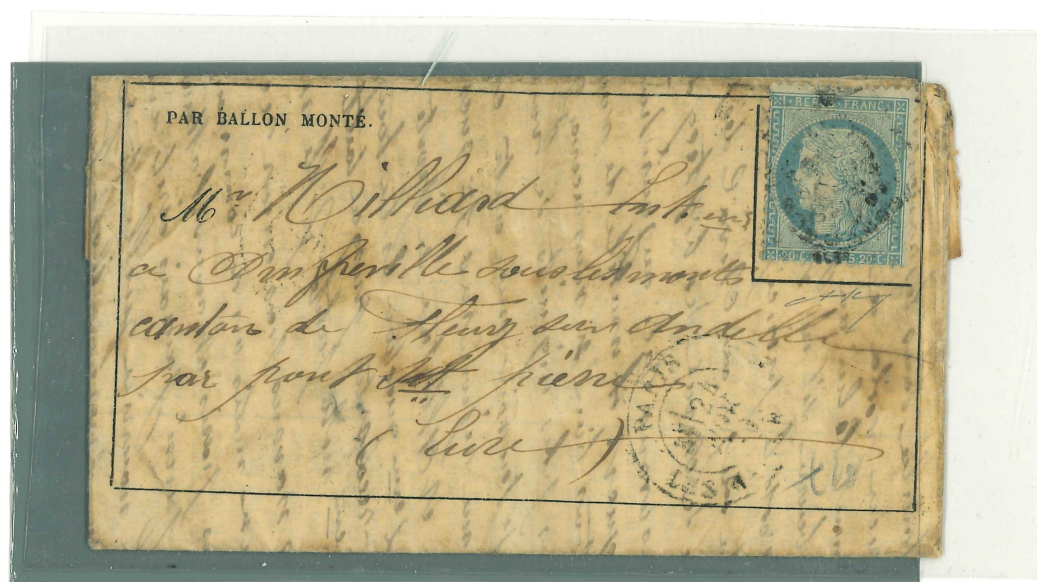 PAR BALLON MONTÉ.
REPUB FRANC
20 C 20 C
Mr Hilliard
a Amfreville sous les monts
canton de Fleury sur Andelle
par pont St pierre
(Eure)
PARIS